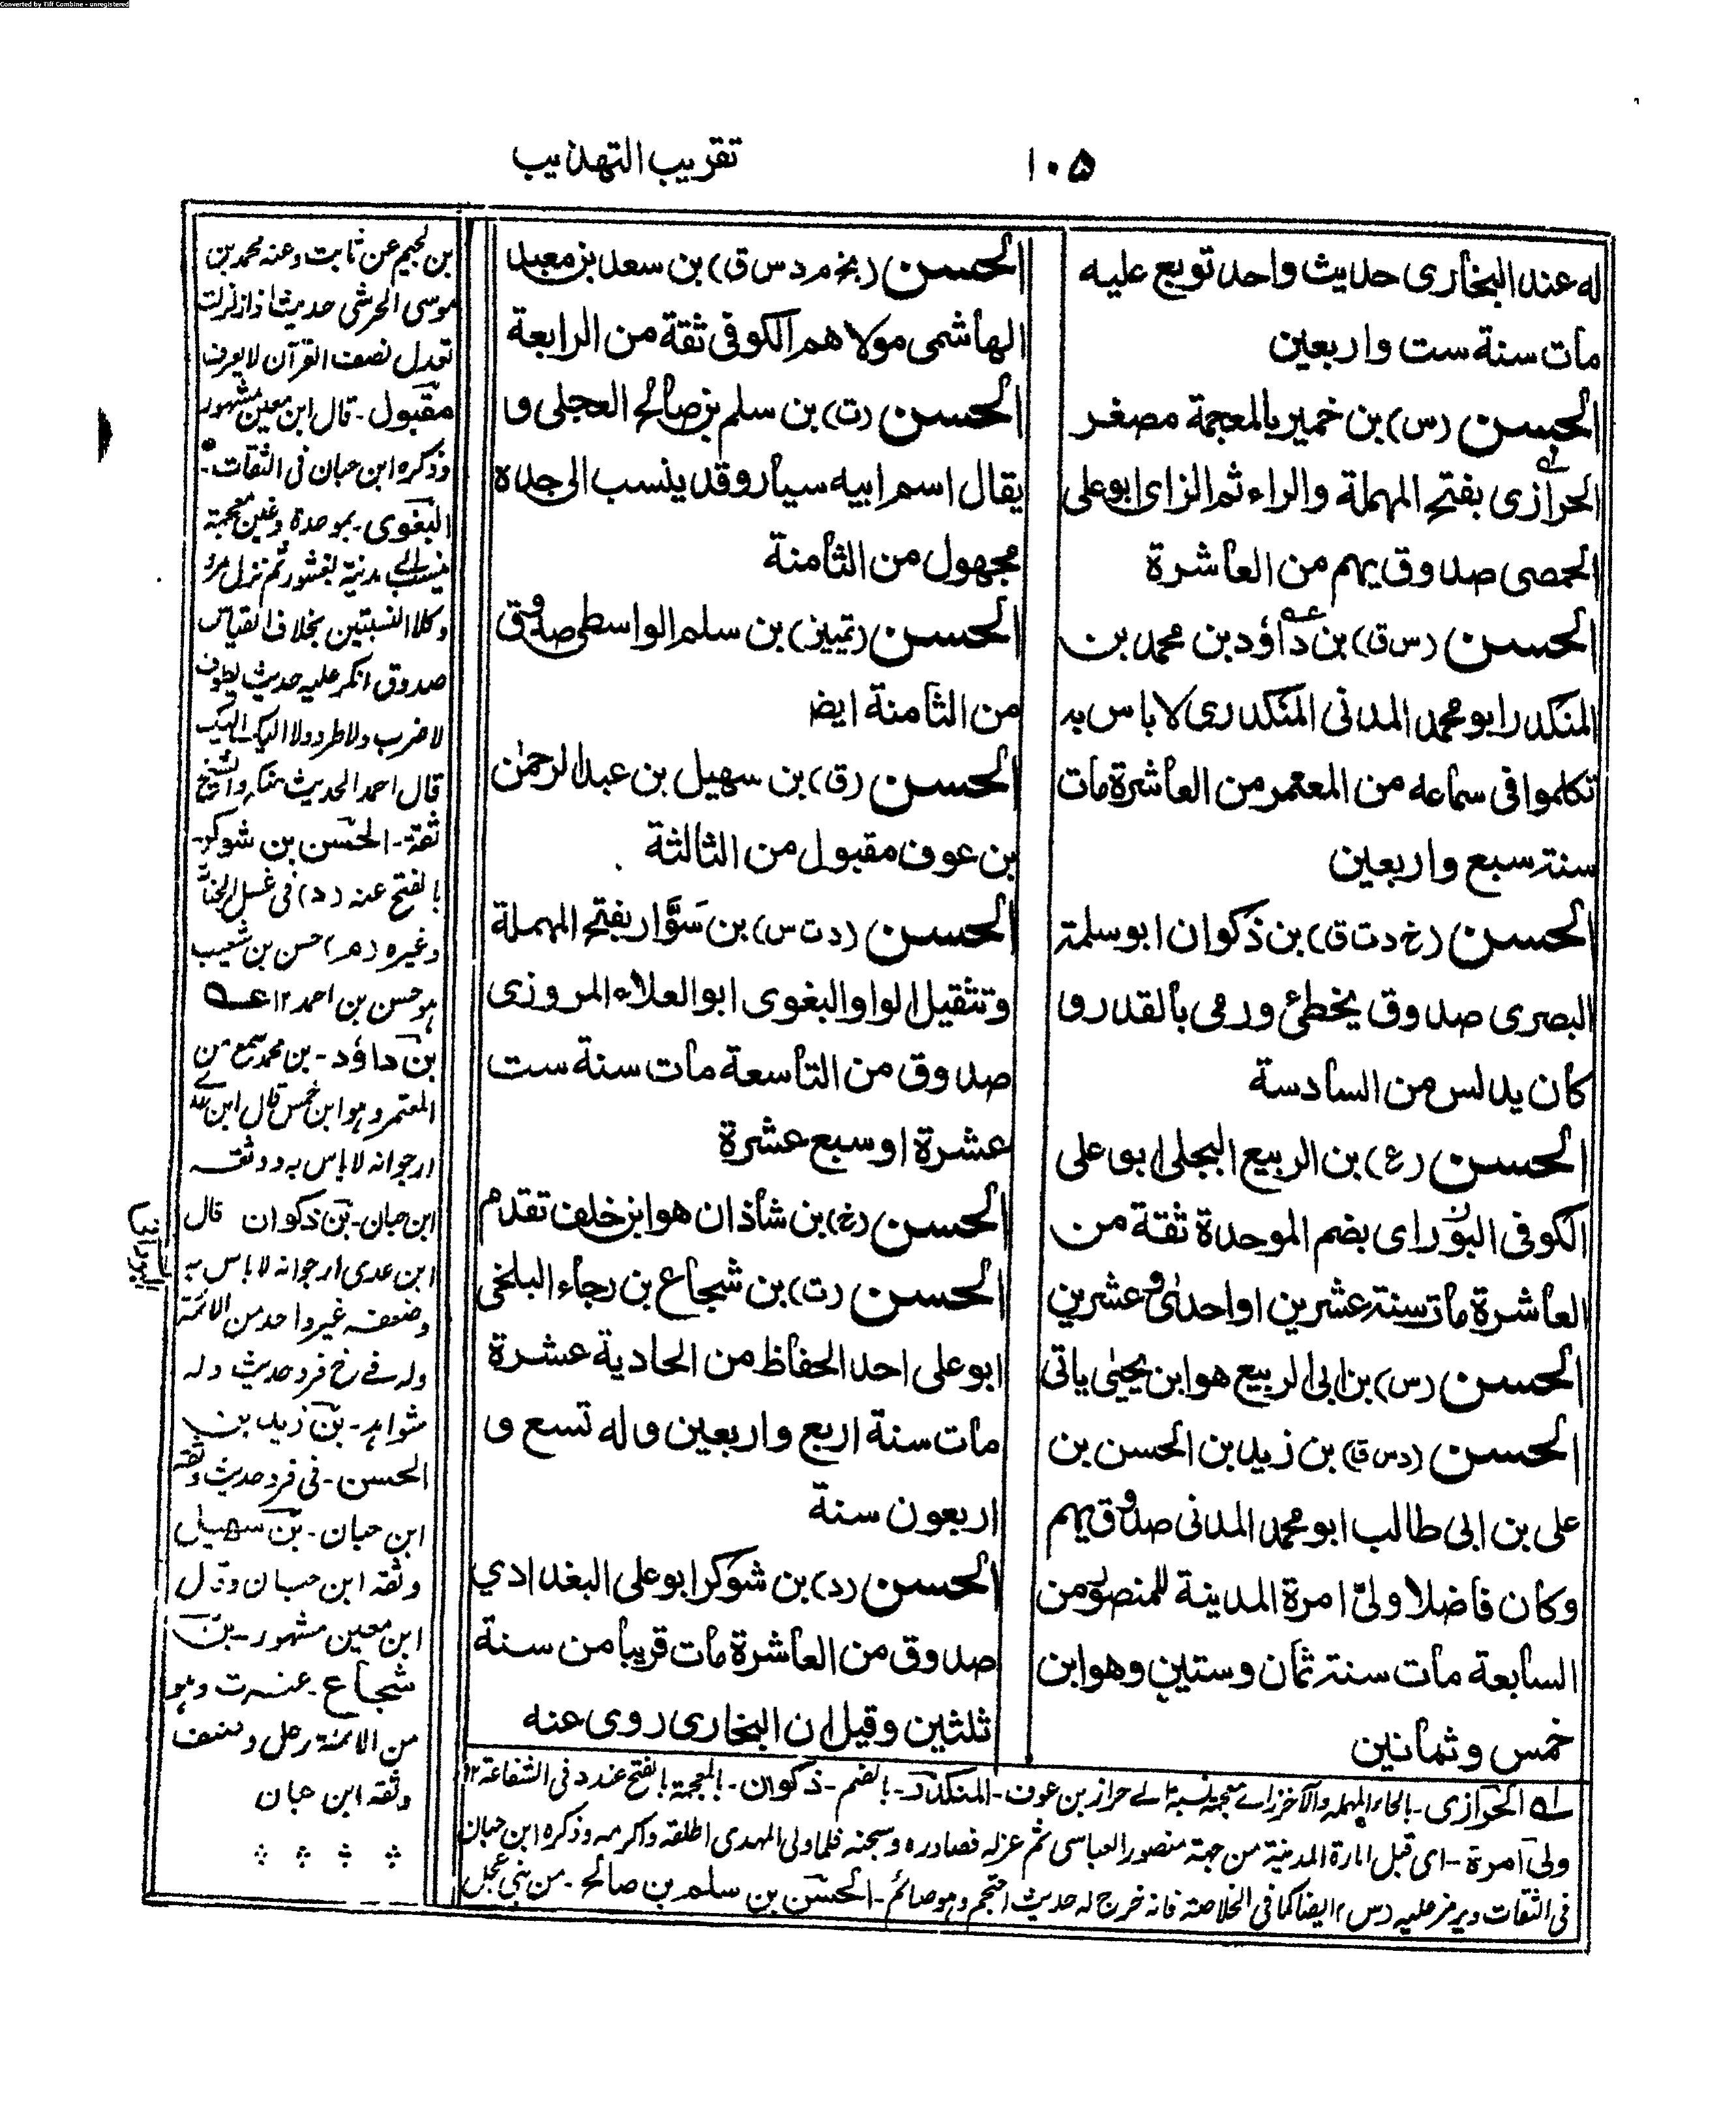 Converted by Tiff Combine - unregistered
۱۰۵
تقريب التهذيب
له عند البخاري حديث واحد توبع عليه
مات سنة ست واربعين
الحسن (س) بن خمير بالمعجمة مصغر
الحرازى بفتح المهملة والراء ثم الزاى ابو على
الحمصى صدوق يهم من العاشرة
الحسن (س ق) بن داؤد بن محمد بن
المنكدر ابو محمد المدنى المنكدرى لا باس به
تكلموا فى سماعه من المعتمر من العاشرة مات
سنة سبع واربعين
الحسن (خ د ت ق) بن ذكوان ابو سلمة
البصرى صدوق يخطئ ورمى بالقدر و
كان يدلس من السادسة
الحسن (ع) بن الربيع البجلى ابو على
الكوفى البوراى بضم الموحدة ثقة من
العاشرة مات سنة عشرين او احدى وعشرين
الحسن (س) بن ابى الربيع هو ابن يحيى ياتى
الحسن (د س ق) بن زيد بن الحسن بن
على بن ابى طالب ابو محمد المدنى صدوق يهم
وكان فاضلا ولى امرة المدينة للمنصور من
السابعة مات سنة ثمان وستين وهو ابن
خمس وثمانين
الحسن (بخ م د س ق) بن سعد بن معبد
الهاشمى مولاهم الكوفى ثقة من الرابعة
الحسن (ت) بن سلم بن صالح العجلى و
يقال اسم ابيه سيار وقد ينسب الى جده
مجهول من الثامنة
الحسن (تمييز) بن سلم الواسطى صدوق
من الثامنة ايض
الحسن (ق) بن سهيل بن عبد الرحمن
بن عوف مقبول من الثالثة
الحسن (د ت س) بن سَوَّار بفتح المهملة
وتثقيل الواو البغوى ابو العلاء المروزى
صدوق من التاسعة مات سنة ست
عشرة او سبع عشرة
الحسن (خ) بن شاذان هو ابن خلف تقدم
الحسن (ت) بن شجاع بن رجاء البلخى
ابو على احد الحفاظ من الحادية عشرة
مات سنة اربع واربعين وله تسع و
اربعون سنة
الحسن (د) بن شوكر ابو على البغدادي
صدوق من العاشرة مات قريبا من سنة
ثلثين وقيل ان البخارى روى عنه
بن لجيم عن ثابت وعنه محمد بن
موسى الحرشى حديث اذا زلزلت
تعدل نصف القرآن لا يعرف
مقبول - قال ابن معين مشهور
وذكره ابن حبان فى الثقات -
البغوى - بموحدة وغين معجمة
ينسب الى مدينة بغشور ثم نزل مرو
وكلا النسبتين بخلاف القياس
صدوق انكر عليه حديث يطوف
لا ضرب ولا طرد ولا اليك اليك
قال احمد الحديث منكر والشيخ
ثقة - الحسن بن شوكر -
بالفتح عنه (د) فى غسل
وغيره (هر) حسن بن شعيب
هو حسن بن احمد ١٢ عــه
بن داؤد - بن محمد سمع من
المعتمر وهو ابن خمس قال ابن عدى
ارجو انه لا باس به ووثقه
ابن حبان - بن ذكوان قال
ابن عدى ارجو انه لا باس به
وضعفه غير واحد من الائمة
وله فى خ فرد حديث وله
شواهد - بن زيد بن
الحسن - فى فرد حديث وثقه
ابن حبان - بن سهيل
وثقه ابن حبان وقال
ابن معين مشهور - بن
شجاع - عنه ت وهو
من الائمة رحل وصنف
وثقه ابن حبان
لـه الحرازى - بالحاء المهملة والآخر زاے معجمة نسبة الے حراز بن عوف - المنكدر - بالضم - ذكوان - بالمعجمة بالفتح عند د فى الشفاعة ١٢
ولى امرة - اى قبل امارة المدينة من جهة منصور العباسى ثم عزله فصادره وسجنه فلما ولى المهدى اطلقه واكرمه وذكره ابن حبان
فى الثقات ويرمز عليه (س) ايضا كما فى الخلاصة فانه خرج له حديث احتجم وهو صائم - الحسن بن سلم بن صالح - من بنى عجل